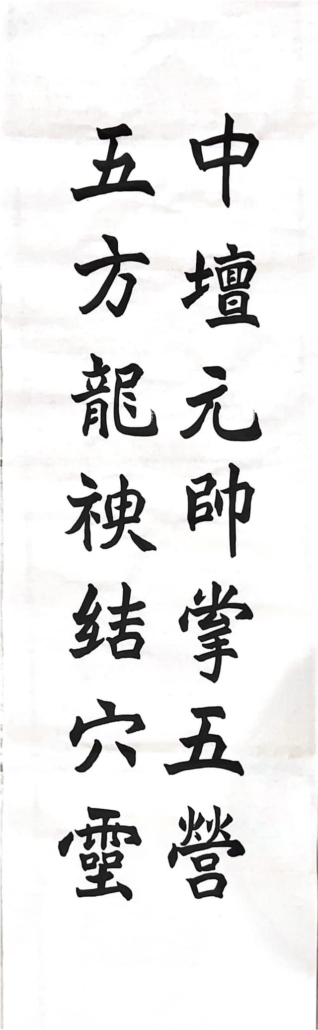 中壇元帥掌五營
五方龍神結穴靈